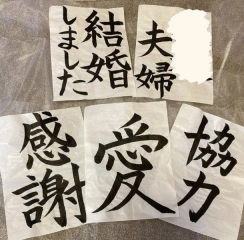 結婚
しました
夫婦
感謝
愛
協力